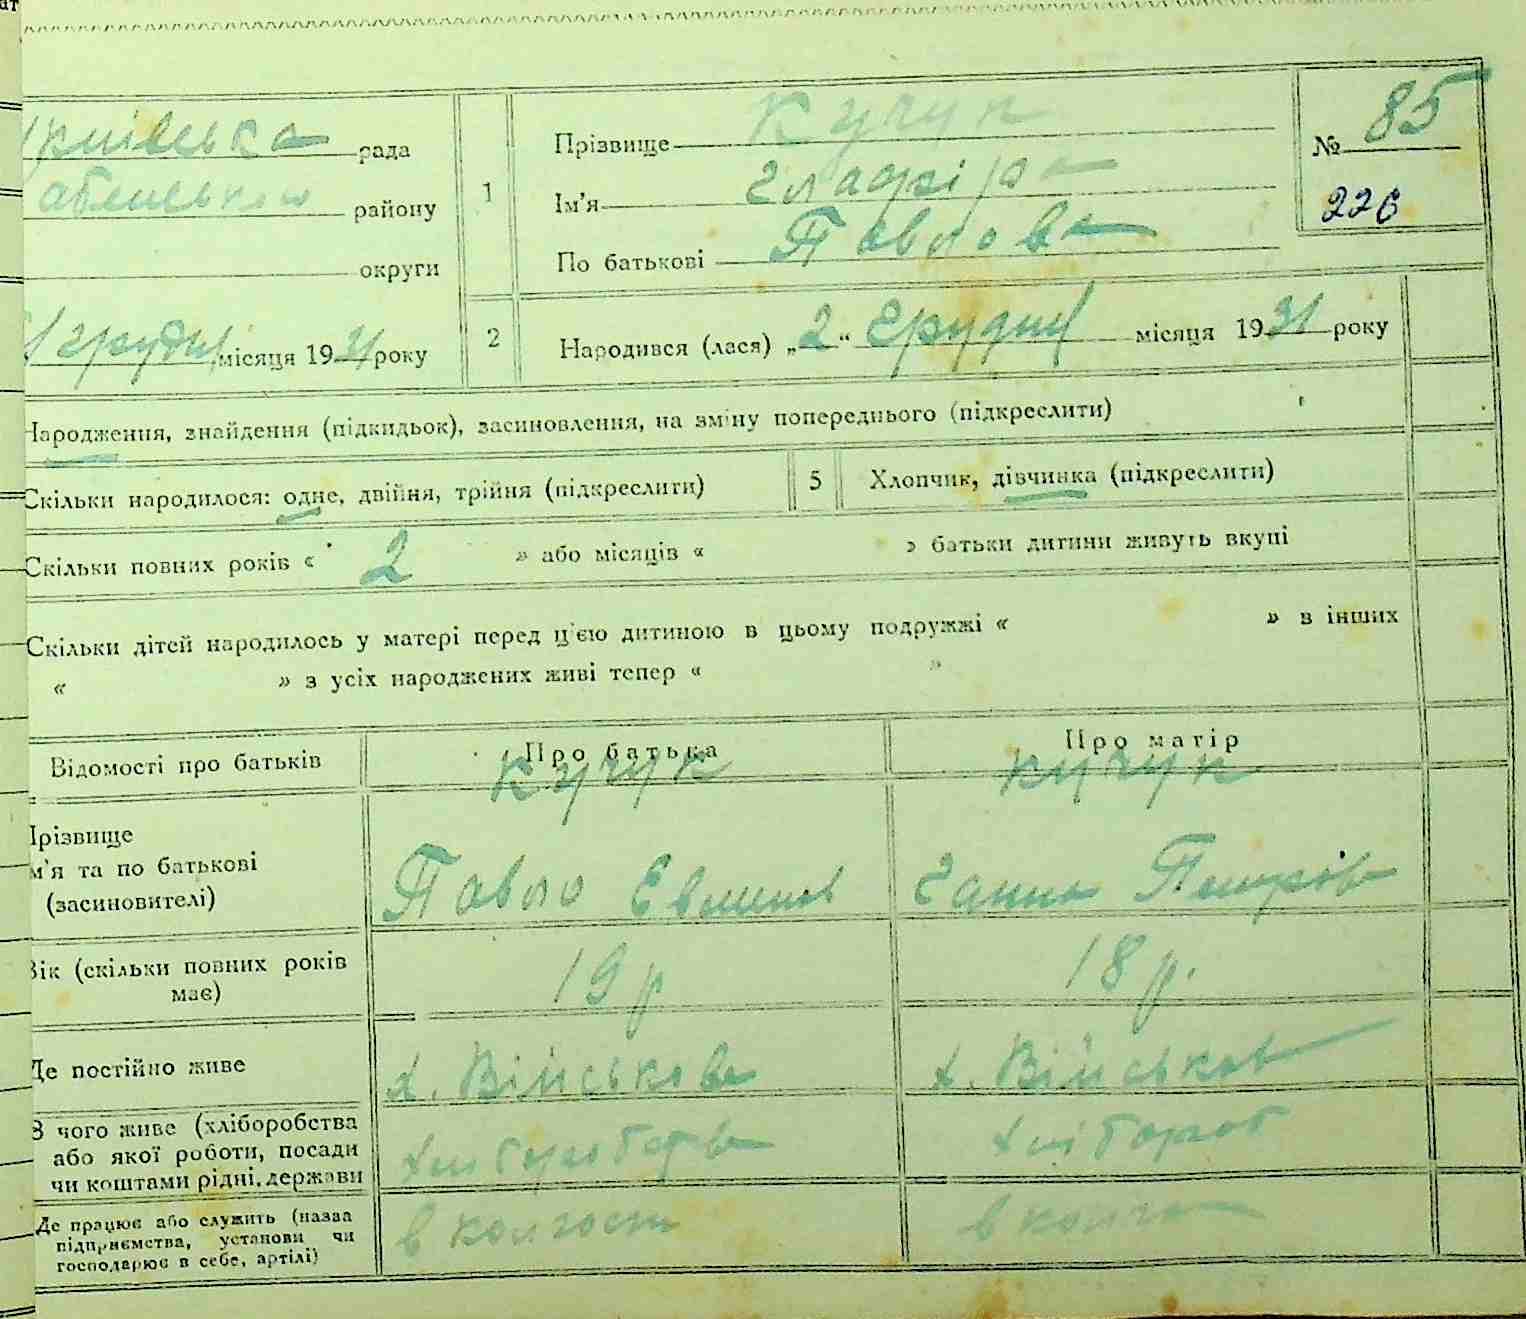 ат
рада
району
округи
грудня місяця 1931 року
1
Прізвище Кучук
Ім'я
По батькові Павлова
№ 85
226
2
Народився (лася) „2“ Грудня місяця 1931 року
Народження, знайдення (підкидьок), засиновлення, на зміну попереднього (підкреслити)
Скільки народилося: одне, двійня, трійня (підкреслити)
5
Хлопчик, дівчинка (підкреслити)
Скільки повних років « 2 » або місяців « » батьки дитини живуть вкупі
Скільки дітей народилось у матері перед ц'єю дитиною в цьому подружжі « » в інших
« » з усіх народжених живі тепер « »
Відомості про батьків
Про батька
Про матір
Кучук
Кучук
Прізвище
м'я та по батькові
(засиновителі)
Павло
Ганна Петрів
Вік (скільки повних років
має)
19 р
18 р.
Де постійно живе
х. Військова
х. Військов
З чого живе (хліборобства
або якої роботи, посади
чи коштами рідні, держави
хліборобств
хлібороб
Де працює або служить (назва
підприємства, установи чи
господарює в себе, артілі)
в колгосп
в колго